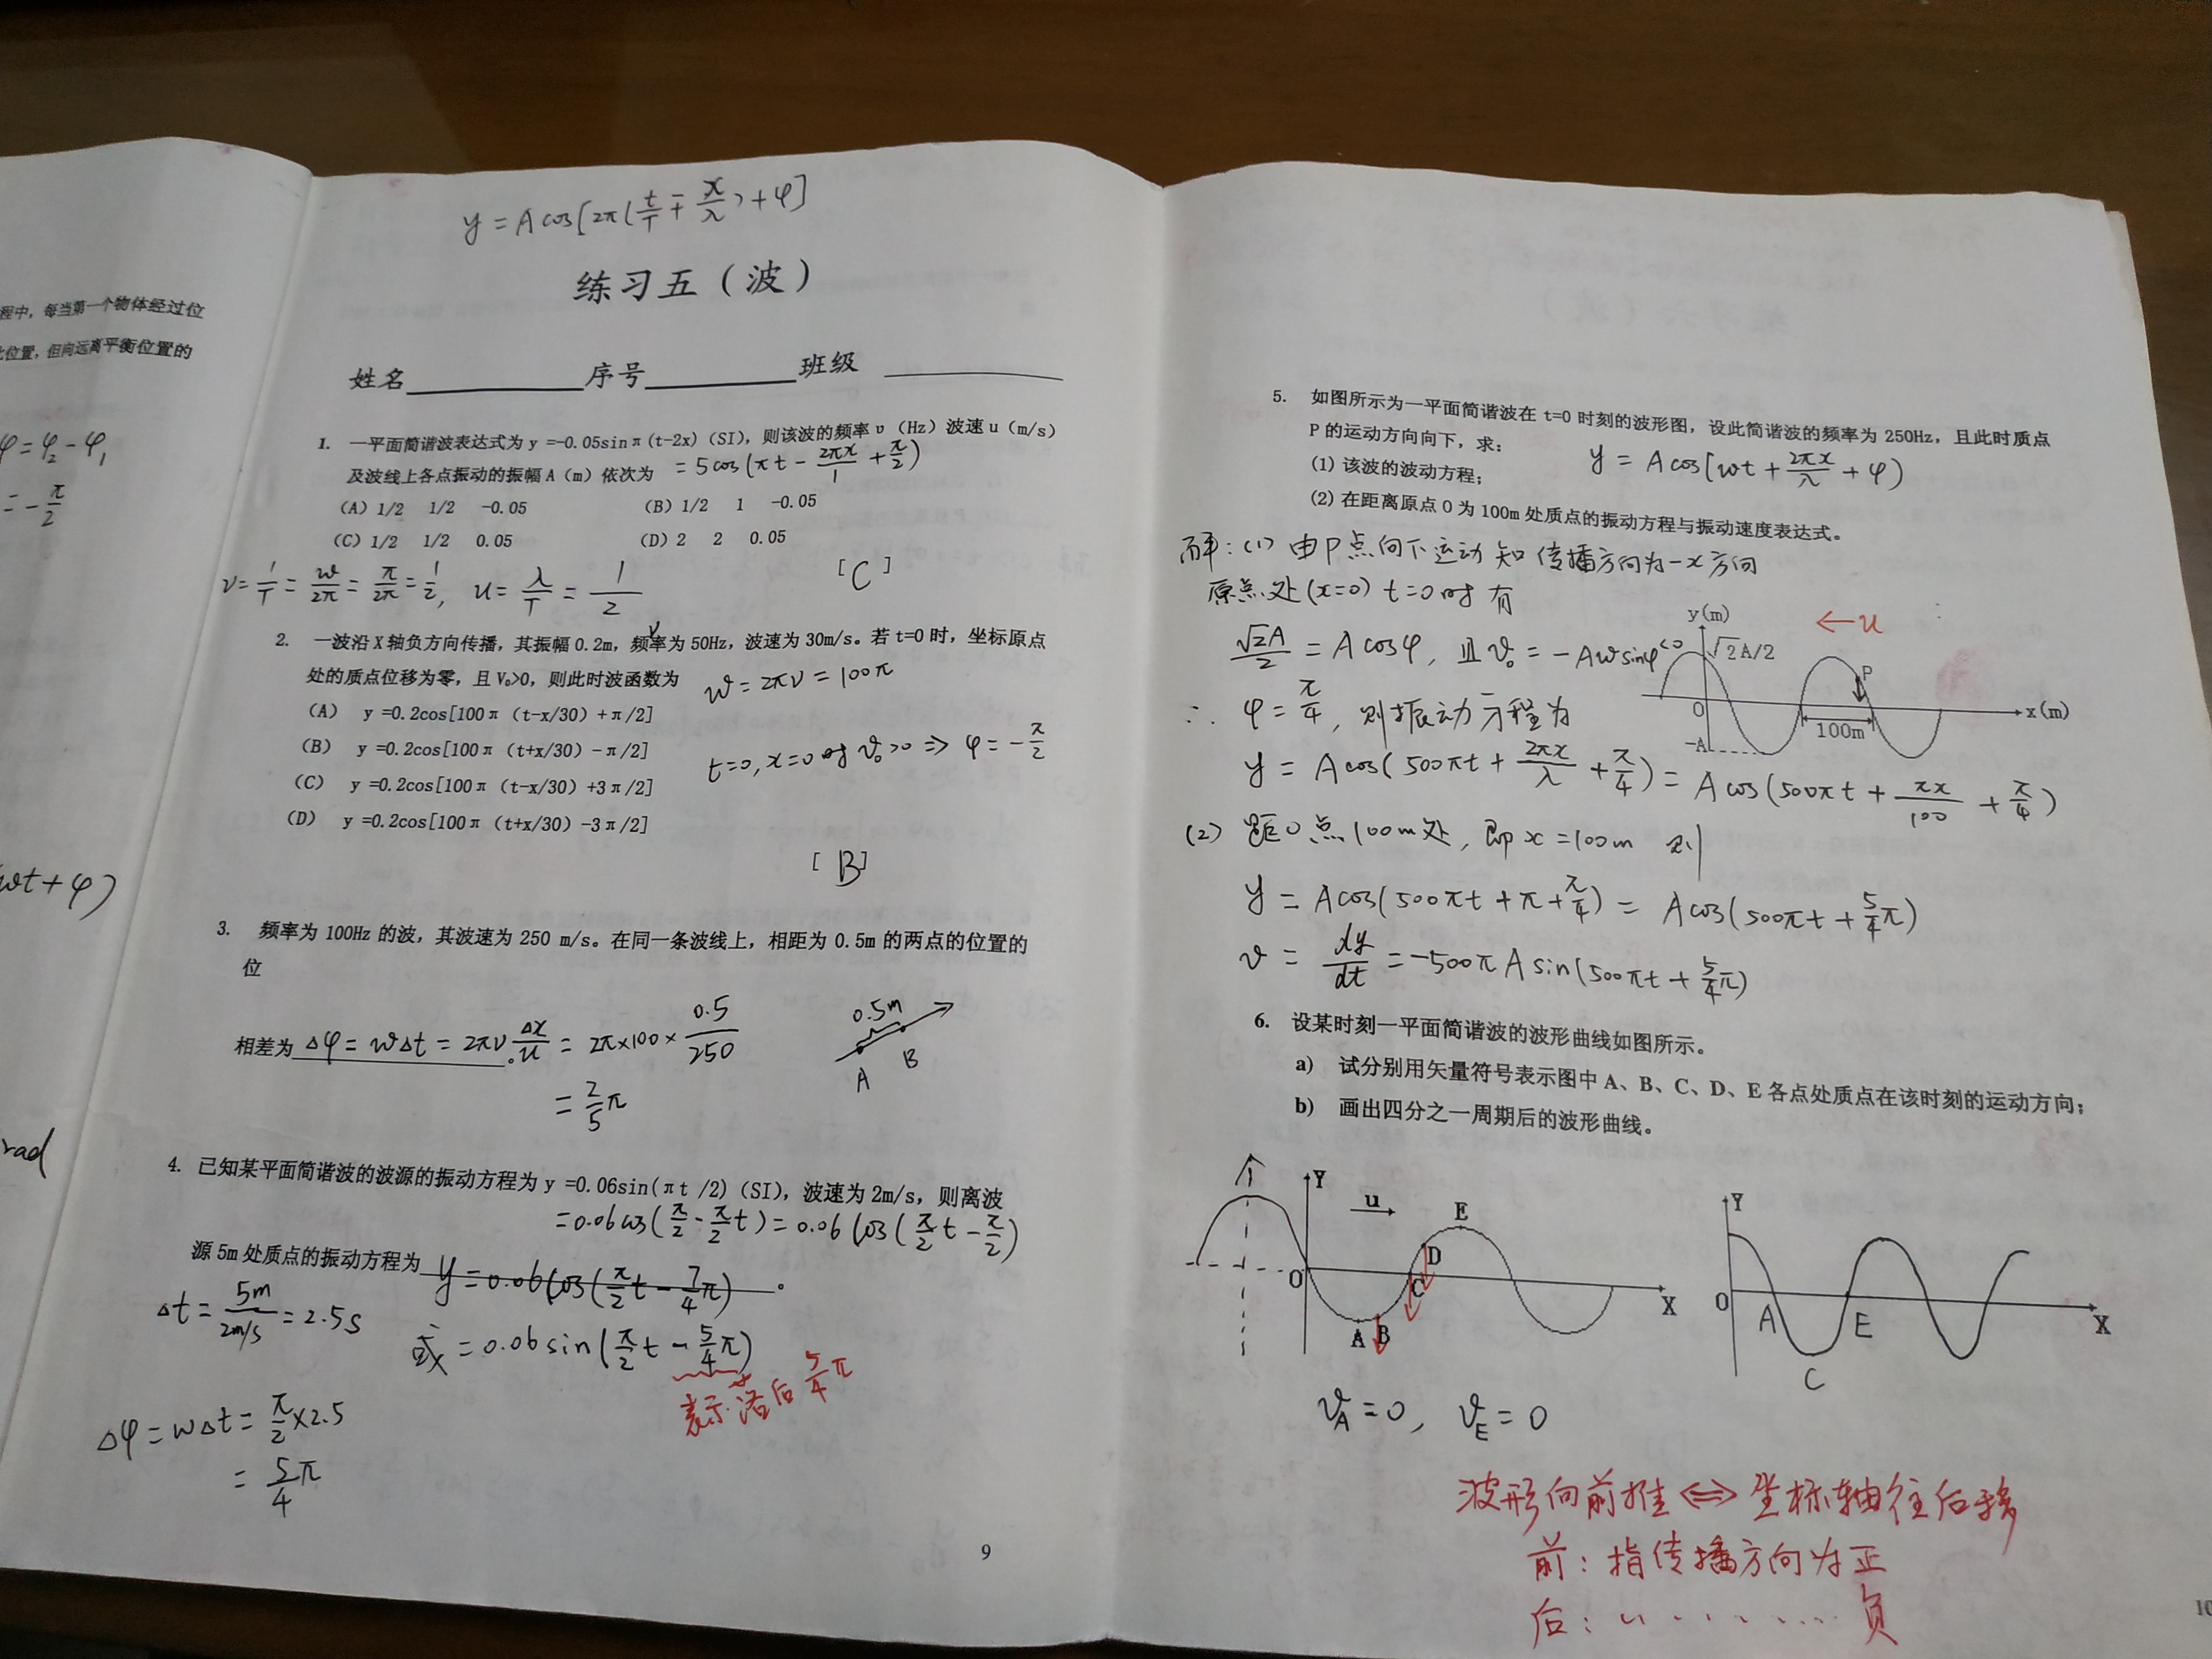 程中，每当第一个物体经过位
比位置，但向远离平衡位置的
φ=φ₂-φ₁
=-π/2
ωt+φ)
rad
y=Acos[2π(t/T∓x/λ)+φ]
练习五（波）
姓名 序号 班级
1. 一平面简谐波表达式为 y =-0.05sinπ(t-2x) (SI)，则该波的频率υ（Hz）波速u（m/s）
及波线上各点振动的振幅A（m）依次为 =5cos(πt-2πx/1+π/2)
(A) 1/2 1/2 -0.05 (B) 1/2 1 -0.05
(C) 1/2 1/2 0.05 (D) 2 2 0.05
[C]
ν=1/T=ω/2π=π/2π=1/2, u=λ/T=1/2
2. 一波沿X轴负方向传播，其振幅0.2m，频率为50Hz，波速为30m/s。若t=0时，坐标原点
ν
处的质点位移为零，且V₀>0，则此时波函数为 ω=2πν=100π
(A) y =0.2cos[100π (t-x/30) +π/2]
(B) y =0.2cos[100π (t+x/30) -π/2]
t=0, x=0时 v₀>0 ⇒ φ=-π/2
(C) y =0.2cos[100π (t-x/30) +3π/2]
(D) y =0.2cos[100π (t+x/30) -3π/2]
[B]
3. 频率为100Hz的波，其波速为250 m/s。在同一条波线上，相距为0.5m的两点的位置的
位
相差为 Δφ=ωΔt=2πν·Δx/u=2π×100×0.5/250
。
=2/5π
0.5m
A B
4. 已知某平面简谐波的波源的振动方程为y =0.06sin(πt /2) (SI)，波速为2m/s，则离波
=0.06cos(π/2-π/2t)=0.06cos(π/2t-π/2)
源5m处质点的振动方程为 y=0.06cos(π/2t-7/4π) 。
Δt=5m/2m/s=2.5s
或=0.06sin(π/2t-5/4π)
表示落后5/4π
Δφ=ωΔt=π/2×2.5
=5/4π
9
5. 如图所示为一平面简谐波在t=0时刻的波形图，设此简谐波的频率为250Hz，且此时质点
P的运动方向向下，求：
(1) 该波的波动方程； y=Acos[ωt+2πx/λ+φ)
(2) 在距离原点O为100m处质点的振动方程与振动速度表达式。
解：(1) 由P点向下运动知传播方向为-x方向
原点处(x=0) t=0时有
√2A/2=Acosφ, 且v₀=-Aωsinφ<0
∴ φ=π/4, 则振动方程为
y(m)
←u
√2A/2
P
O
x(m)
100m
-A
y=Acos(500πt+2πx/λ+π/4)=Acos(500πt+πx/100+π/4)
(2) 距O点100m处, 即x=100m 则
y=Acos(500πt+π+π/4)=Acos(500πt+5/4π)
v=dy/dt=-500πAsin(500πt+5/4π)
6. 设某时刻一平面简谐波的波形曲线如图所示。
a) 试分别用矢量符号表示图中A、B、C、D、E各点处质点在该时刻的运动方向；
b) 画出四分之一周期后的波形曲线。
Y
u
E
D
C
O
X
A B
Y
O
A
E
X
C
v_A=0, v_E=0
波形向前推⇔坐标轴往后移
前：指传播方向为正
后：〃 ...... 负
10